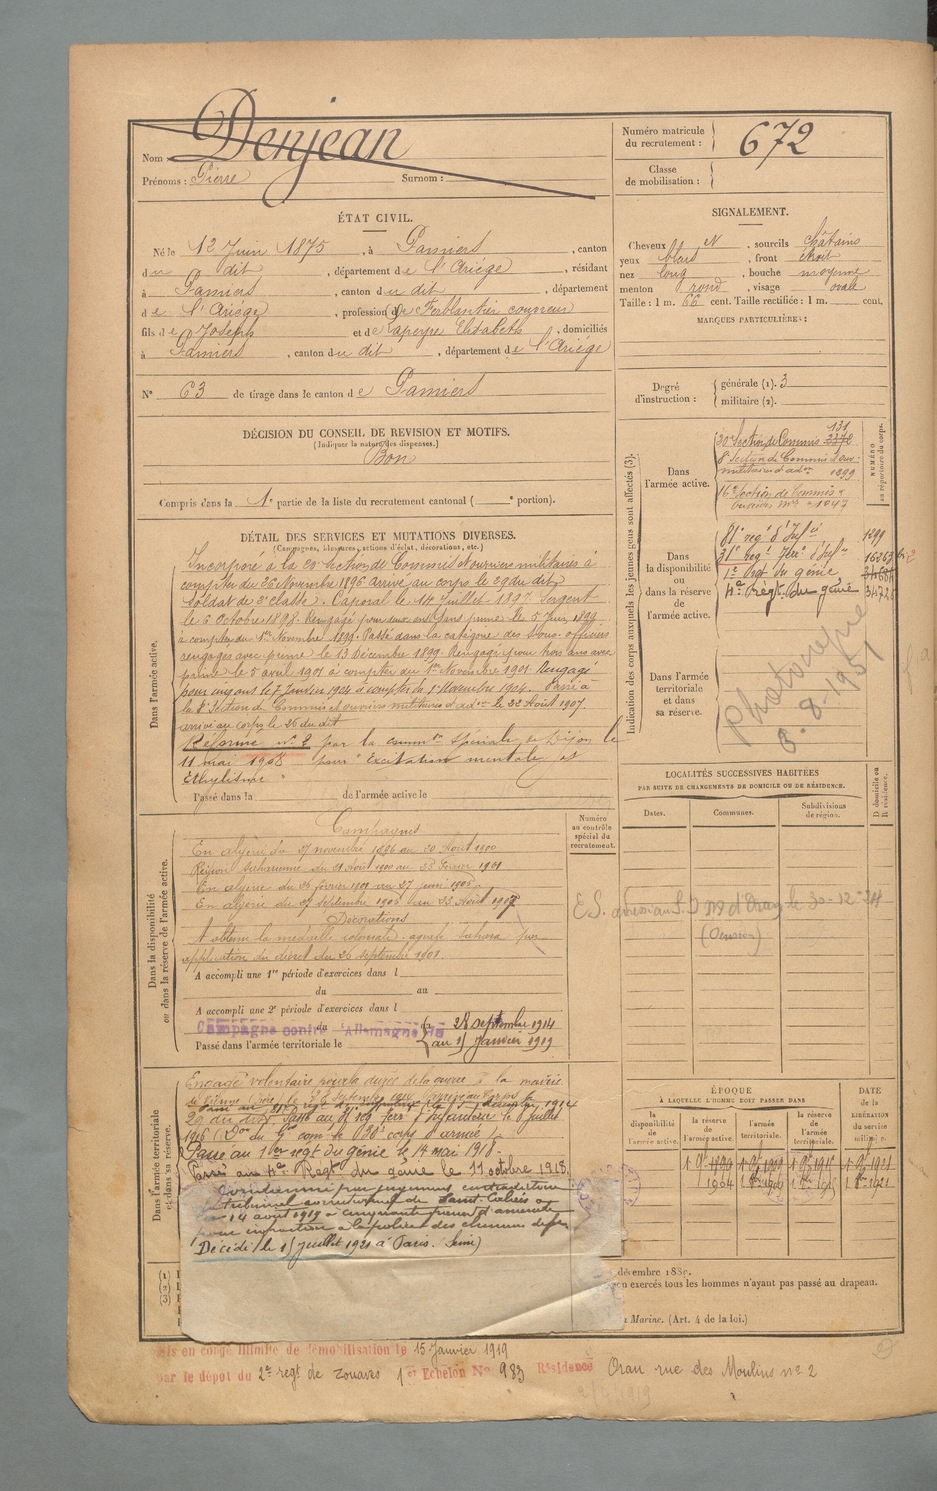 Nom : Denjean
Prénoms : Pierre Surnom :
Numéro matricule du recrutement : 672
Classe de mobilisation :
ÉTAT CIVIL.
Né le 12 Juin 1875, à Pamiers, canton
du dit, département de l'Ariège, résidant
à Pamiers, canton du dit, département
de l'Ariège, profession de Ferblantier
fils de Joseph et de Lapeyre Elisabeth, domiciliés
à Pamiers, canton du dit, département de l'Ariège
N° 63 de tirage dans le canton de Pamiers
DÉCISION DU CONSEIL DE REVISION ET MOTIFS.
(Indiquer la nature des dispenses.)
Bon
Compris dans la 1e partie de la liste du recrutement cantonal ( e portion).
SIGNALEMENT.
Cheveux et, sourcils châtains
yeux bleus, front étroit
nez long, bouche moyenne
menton rond, visage ovale
Taille : 1 m. 66 cent. Taille rectifiée : 1 m. cent.
MARQUES PARTICULIÈRES :
Degré d'instruction : générale (1). 3
militaire (2).
Indication des corps auxquels les jeunes gens sont affectés (3).
NUMÉRO au répertoire du corps.
Dans l'armée active.
131
20e Section de Commis 2372
8e Section de Commis d'ouv.
militaires d'adon 1899
16e Section de Commis
ouvriers mres 1047
Dans la disponibilité ou dans la réserve de l'armée active.
81e régt d'Infie 1299
31e Regt Terr. d'Infie
1er Regt du génie
4e Régt du génie
Dans l'armée territoriale et dans sa réserve.
8-1951
DÉTAIL DES SERVICES ET MUTATIONS DIVERSES.
(Campagnes, blessures, actions d'éclat, décorations, etc.)
Dans l'armée active.
Incorporé à la 20e Section de Commis et ouvriers militaires à
compter du 26 Novembre 1896 arrivé au corps le 29 du dit
Soldat de 2e classe. Caporal le 14 Juillet 1897 Sergent
le 6 Octobre 1898. Rengagé pour deux ans sans prime le 5 1899
à compter du 1er Novembre 1899. Passé dans la catégorie des Sous-officiers
rengagés avec prime le 13 Décembre 1899. Rengagé pour trois ans avec
prime le 5 avril 1901 à compter du 1er Novembre 1901. Rengagé
pour cinq ans le 7 Janvier 1904 à compter du 1er Novembre 1904. Passé à
la 8e Section de Commis et ouvriers militaires d'adon le 22 Août 1907
arrivé au corps le 26 du dit
Réformé n° 2 par la common spéciale de Dijon le
11 mai 1908 pour "Excitation mentale et
Ethylisme"
Passé dans la de l'armée active le
LOCALITÉS SUCCESSIVES HABITÉES
PAR SUITE DE CHANGEMENTS DE DOMICILE OU DE RÉSIDENCE.
Dates. Communes. Subdivisions de région. D domicile ou R résidence.
Numéro au contrôle spécial du recrutement.
Dans la disponibilité ou dans la réserve de l'armée active.
Campagnes
En algérie du 27 novembre 1896 au 30 Août 1900
Région Saharienne du 31 Août 1900 au 23 Février 1901
En algérie du 24 février 1901 au 27 juin 1905
En algérie du 27 septembre 1905 au 25 Août 1907
Décorations
A obtenu la médaille coloniale agrafe Sahara par
application du décret du 26 septembre 1901.
A accompli une 1re période d'exercices dans l
du au
A accompli une 2e période d'exercices dans l
Campagne contre l'Allemagne du 28 septembre 1914
Passé dans l'armée territoriale le au 15 Janvier 1919
le 30-12-24
Dans l'armée territoriale et dans sa réserve.
Engagé volontaire pour la durée de la guerre à la mairie
29 du dit. Passé au 31e rég Terr. d'infanterie le 8 juillet
Passé au 1er regt du génie le 14 mai 1918.
Passé au 4e Regt du génie le 11 octobre 1918.
Condamné par jugement contradictoire
tribunal correctionnel de
14 août 1919 à cinquante francs d'amende
pour infraction à la police des chemins de fer
Décédé le 15 juillet 1921 à Paris. (Seine)
ÉPOQUE
À LAQUELLE L'HOMME DOIT PASSER DANS
la disponibilité de l'armée active. la réserve de l'armée active l'armée territoriale. la réserve de l'armée territoriale.
DATE de la LIBÉRATION du service militaire.
1904
décembre 1889.
exercés tous les hommes n'ayant pas passé au drapeau.
Marine. (Art. 4 de la loi.)
Mis en congé illimité de démobilisation le 15 Janvier 1919
par le dépôt du 2e regt de zouaves 1er Echelon N° 983 Résidence Oran rue des Moulins n° 2